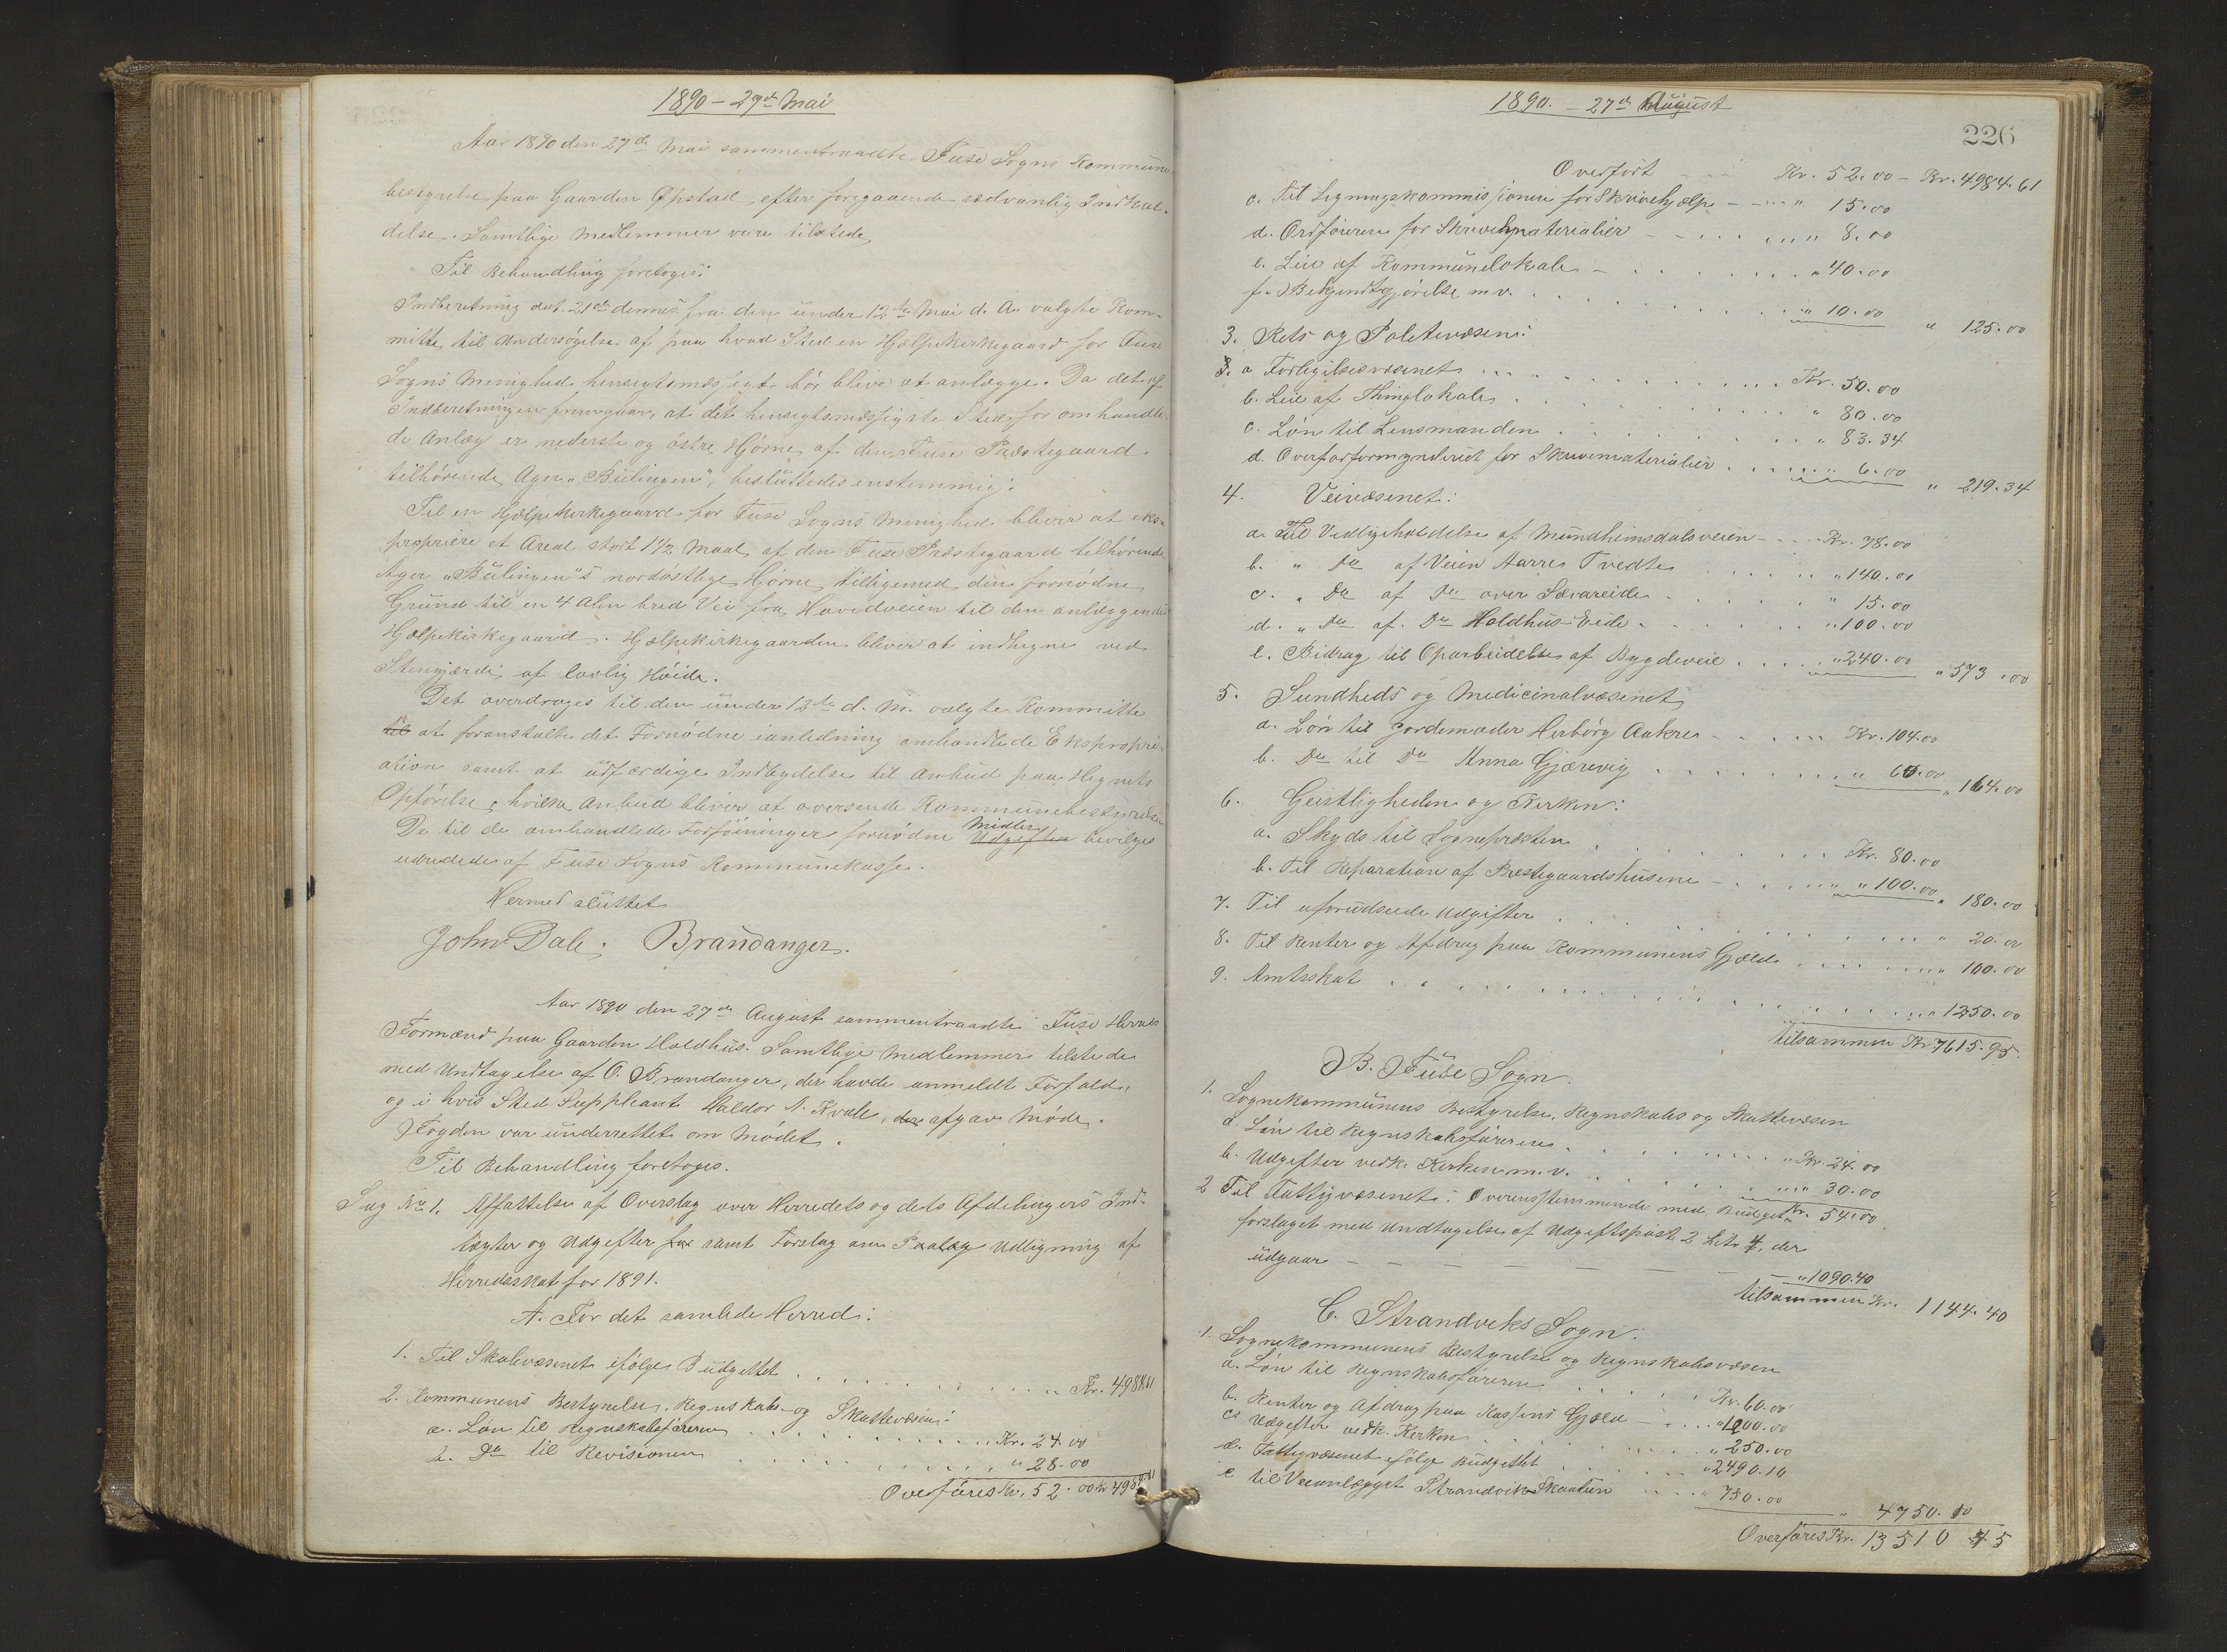 1890 – 27de Mai
Aar 1890 den 27de Mai sammentraadte Fuse Sogns Kommune
bestyrelse paa Gaarden Øpstad efter foregaaende sædvanlig Indkal-
delse. Samtlige Medlemmer vare tilstede
Til Behandling foretoges:
Indberetning dat. 21de dennes fra den under 12te Mai d. A. valgte Kom-
mitte, til Undersøgelse af paa hvad Sted en Hjælpekirkegaard for Fuse
Sogns Menighed hensigtsmæssigst bør blive at anlægge. Da det af
Indberetningen fremgaar, at det hensigtsmæssigste Sted for omhandle-
de Anlæg er nederste og østre Hjørne af den Fuse Præstegaard
tilhørende Ager "Bülingen", besluttedes enstemmig:
Til en Hjælpekirkegaard for Fuse Sogns Menighed bliver at eks-
propriere et Areal stort 1 1/2 Maal af den Fuse Præstegaard tilhørende
Ager "Bülingen"s nordøstlige Hjørne tilligemed den fornødne
Grund til en 4 Alen bred Vei fra Hovedveien til den anlæggendes
Hjælpekirkegaard. Hjælpekirkegaarden bliver at indhegne ved
Stengjærde af lovlig Høide.
Det overdrages til den under 12te d. M. valgte Kommitte
til at foranstalte det Fornødne i anledning omhandlede Ekspropri-
ation samt at udfærdige Indbydelse til Anbud paa Hegnets
Opførelse, hvilke Anbud bliver at oversende Kommunebestyrelsen
De til de omhandlede Forføininger fornødne Udgifter Midler bevilges
udredede af Fuse Sogns Kommunekasse.
Hermed sluttet
John Dale. Brandanger.
Aar 1890 den 27de August sammentraadte Fuse Herreds
Formænd paa Gaarden Holdhus. Samtlige Medlemmer tilstede
med Undtagelse af O. Brandanger, der havde anmeldt Forfald,
og i hvis Sted Suppleant Haldor N. Kvale, der afgav Møde.
Fogden var underrettet om Mødet.
Til Behandling foretoges.
Sag No 1. Affattelse af Overslag over Herredets og dets Afdelingers Ind-
tægter og Udgifter for samt Forslag om Paalæg Udligning af
Herredsskat for 1891.
A. For det samlede Herred:
1. Til Skolevæsenet ifølge Budgettet . . . . Kr. 4984.61
2. Kommunens Bestyrelse, Regnskabs- og Skattevæsen:
a. Løn til Regnskabsføreren . . . . Kr. 24.00
b. Do til Revisionen . . . . " 28.00
Overføres Kr. 52.00 Kr 4984.61
1890. – 27de August
226
Overført – – – Kr. 52.00 – Kr. 4984.61
c. Til Ligningskommissionen for Skrivehjælp – – . . " 15.00
d. Ordføreren for Skrivematerialier – – . . . " 8.00
e. Leie af Kommunelokale – . . . . " 40.00
f. Bekjendtgjørelse m.v. . . . . " 10.00 " 125.00
3. Rets og Politivæsen:
a Forligelsesvæsenet . . . . Kr. 50.00
b. Leie af Thinglokale . . . . " 80.00
c. Løn til Lensmanden . . . . " 83.34
d. Overformynderiet for Skrivematerialier . . . . " 6.00 " 219.34
4. Veivæsenet:
a. Til Vedligeholdelse af Mundheimsdalsveien – . . Kr. 78.00
b. " Do af Veien Aarres Tvedte . . . . " 140.00
c. " Do af Do over Sævareide . . . . " 15.00
d. " Do af Do Holdhus-Eide . . . . " 100.00
e. Bidrag til Oparbeidelse af Bygdeveie . . . . " 240.00 " 573.00
5. Sundheds og Medicinalvæsenet
a. Løn til Jordemoder Herborg Aakre – . . . Kr. 104.00
b. Do til Do Anna Gjærevig . . . . " 60.00 " 164.00
6. Geistligheden og Kirken:
a. Skyds til Sognepræsten . . . . Kr. 80.00
b. Til Reparation af Præstegaardshusene – . . . " 100.00 " 180.00
7. Til uforudseede Udgifter . . . . " 20.00
8. Til Renter og Afdrag paa Kommunens Gjæld . . . . " 100.00
9. Amtsskat . . . . " 1250.00
tilsammen Kr. 7615.95.
B. Fuse Sogn.
1. Sognekommunens Bestyrelse, Regnskabs og Skattevæsen
a. Løn til Regnskabsføreren . . . . Kr. 24.00
b. Udgifter vedk. Kirken m.v. . . . . " 30.00
Kr. 54.00
2 Til Fattigvæsenet: Overensstemmende med Budget-
forslaget med Undtagelse af Udgiftspost 2 Litr , der
udgaar – – – – – – " 1090.40
tilsammen Kr. 1144.40
C. Strandviks Sogn:
1. Sognekommunens Bestyrelse og Regnskabsvæsen
a. Løn til Regnskabsføreren . . . . Kr. 60.00
b. Renter og Afdrag paa Kassens Gjæld – . . . " 1200.00
c. Udgifter vedk. Kirken . . . . " 250.00
d. Fattigvæsenet ifølge Budgettet . . . . " 2490.10
e til Veianlægget Strandvik-Skaatun . . . . " 750.00
" 4750.10
Overføres Kr. 13510 45